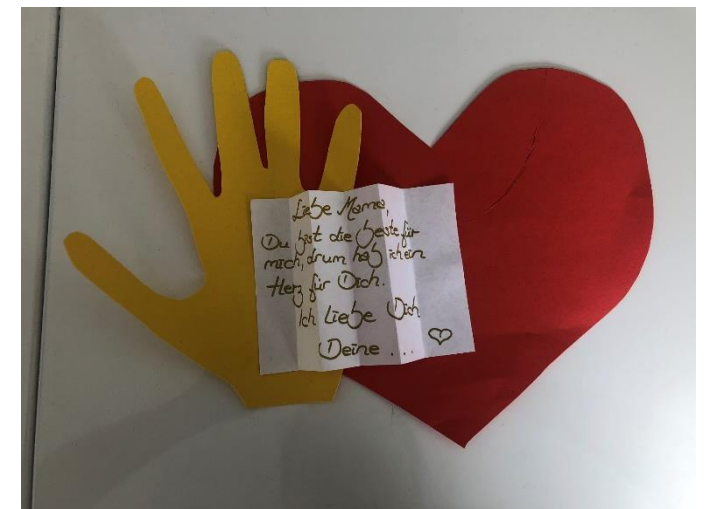 Liebe Mama,
Du bist die Beste für
mich, drum hab ich ein
Herz für Dich.
Ich Liebe Dich
Deine ... ♡